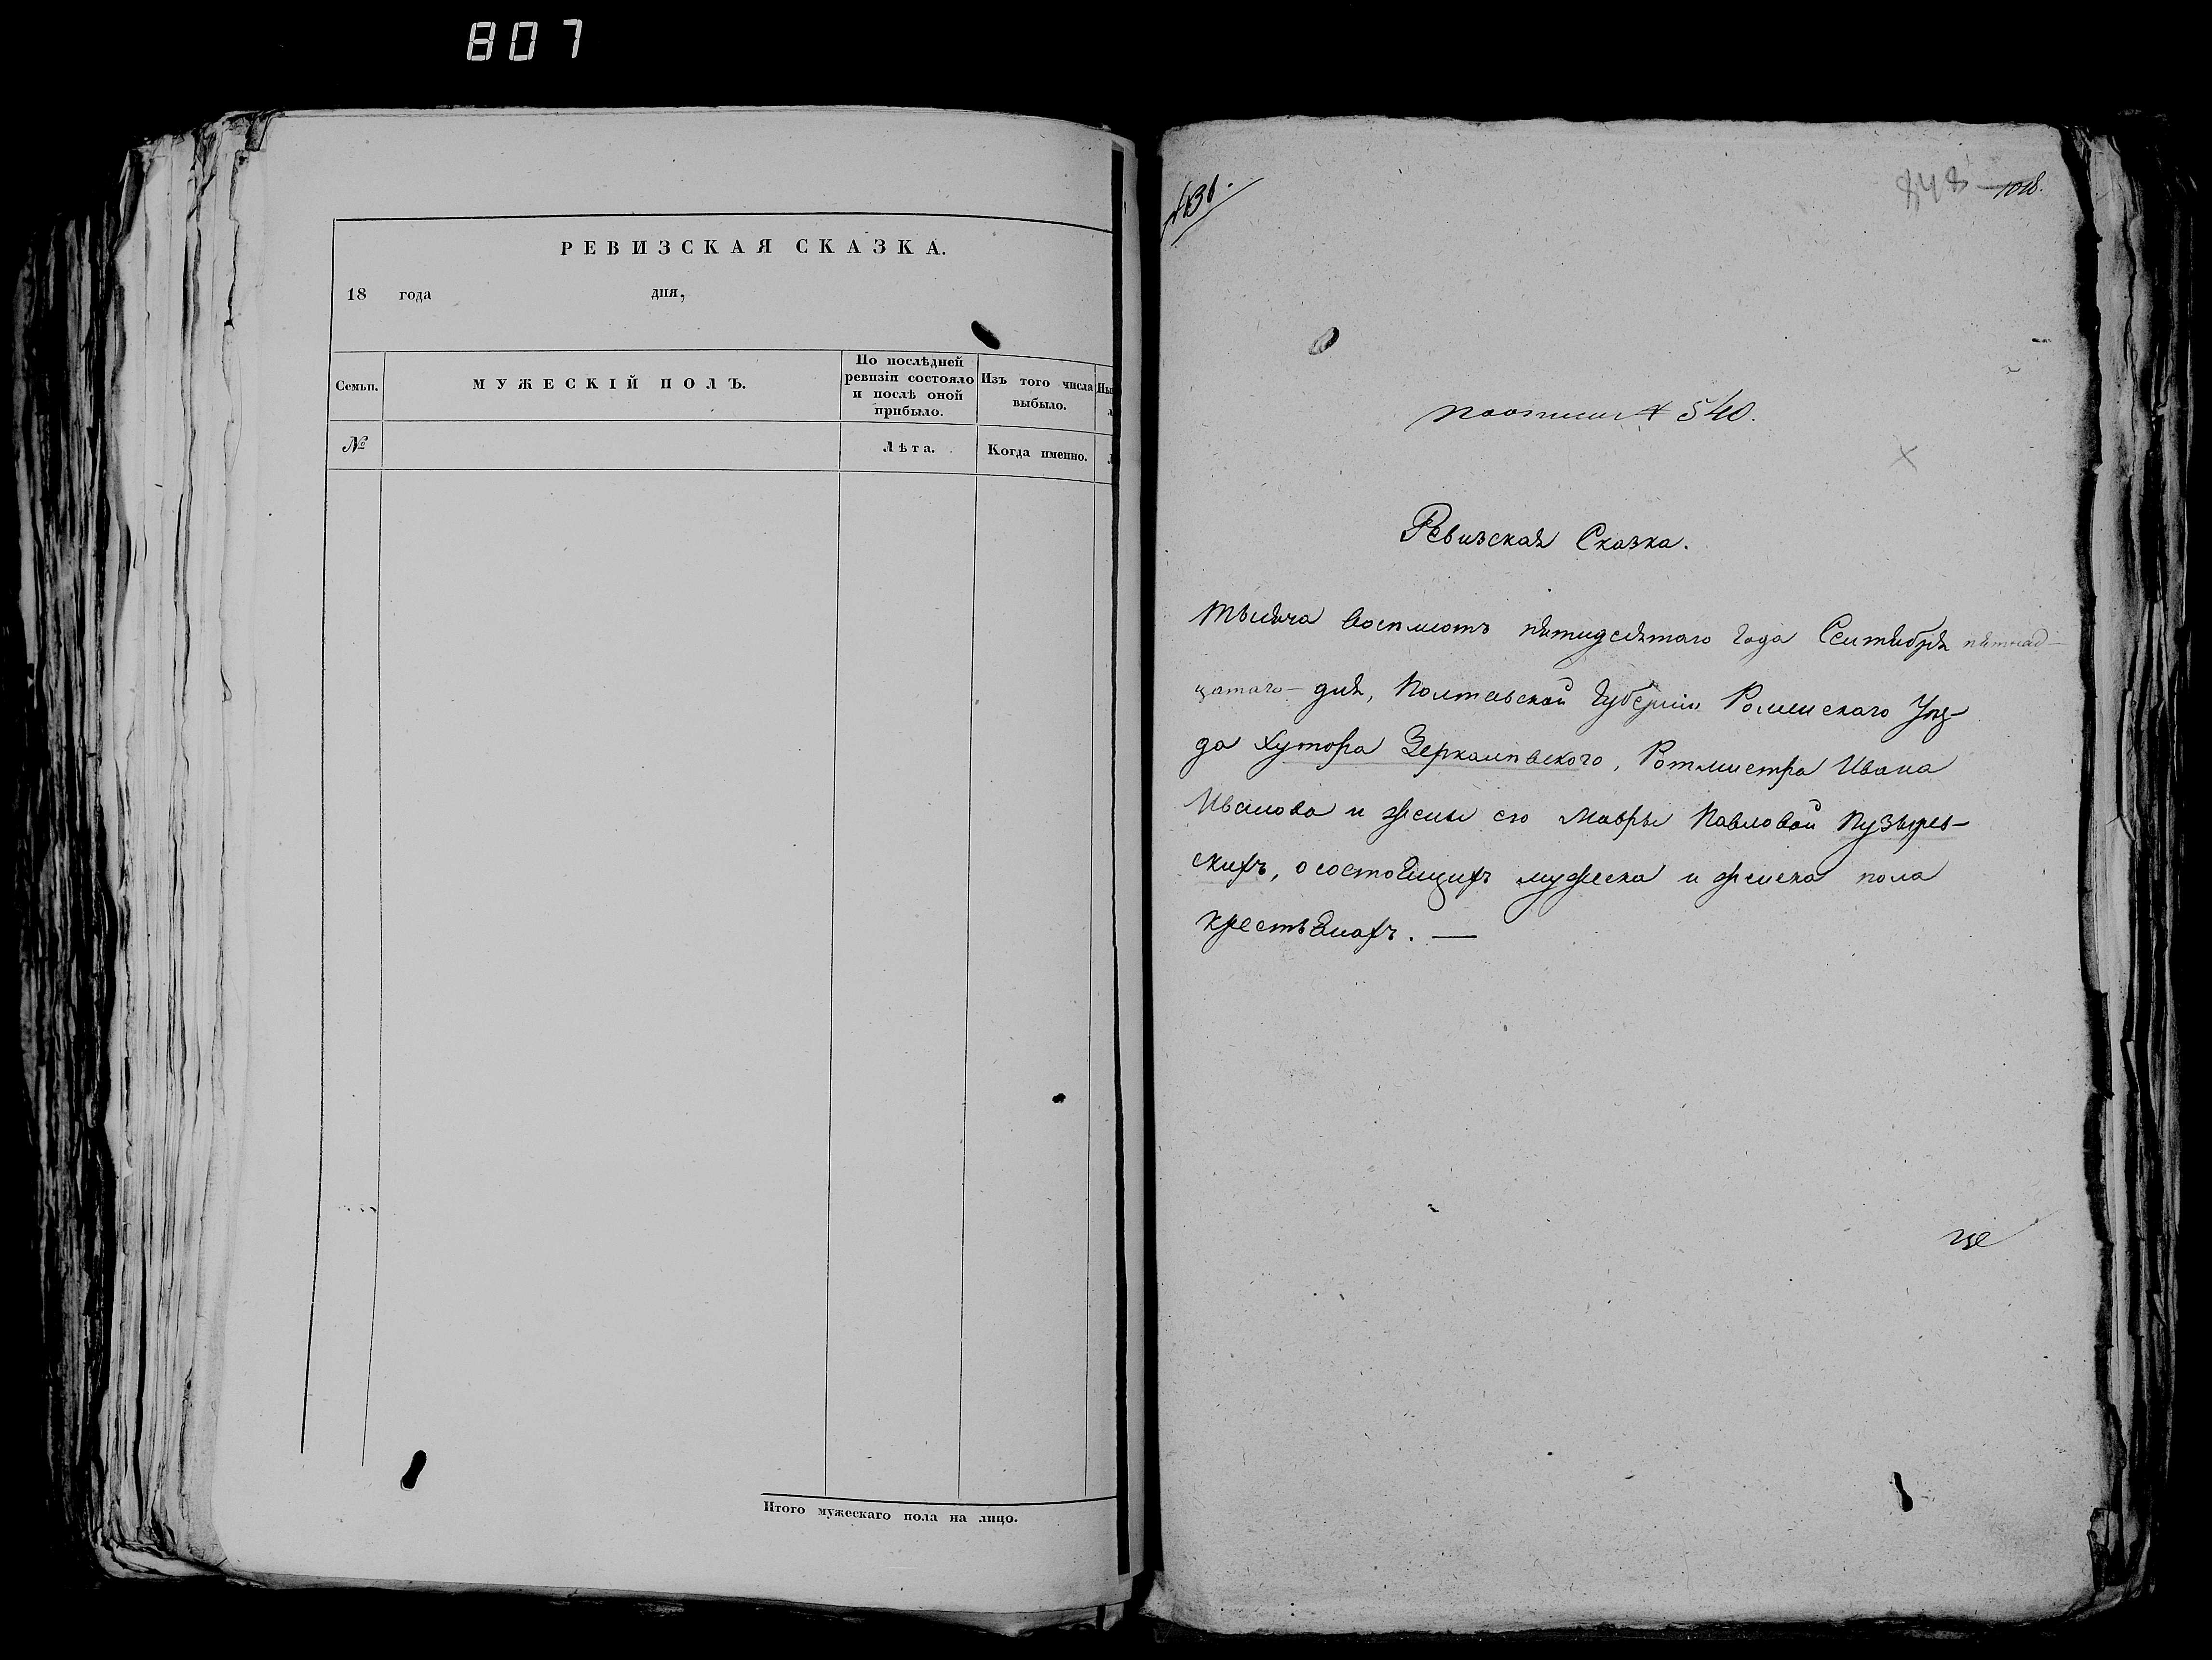 807
РЕВИЗСКАЯ СКАЗКА.
18 года дня,
Семьи.
МУЖЕСКІЙ ПОЛЪ.
По послѣдней
ревизіи состояло
и послѣ оной
прибыло.
Изъ того числа
выбыло.
№
Лѣта.
Когда именно.
Итого мужескаго пола на лицо.
848 1018.
540.
Ревизская Сказка.
Тысяча восемсотъ пятидесятаго года Сентября пятнад-
цатаго дня, Полтавской Губерніи Роменскаго Уѣз-
да Хутора, Ротмистра Ивана
Иванова и жены его Мавры Павловой Пузырев-
скихъ, о состоящихъ мужеска и женска пола
крестьянахъ. —